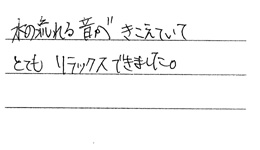 水の流れる音が きこえていて
とても リラックスできました。